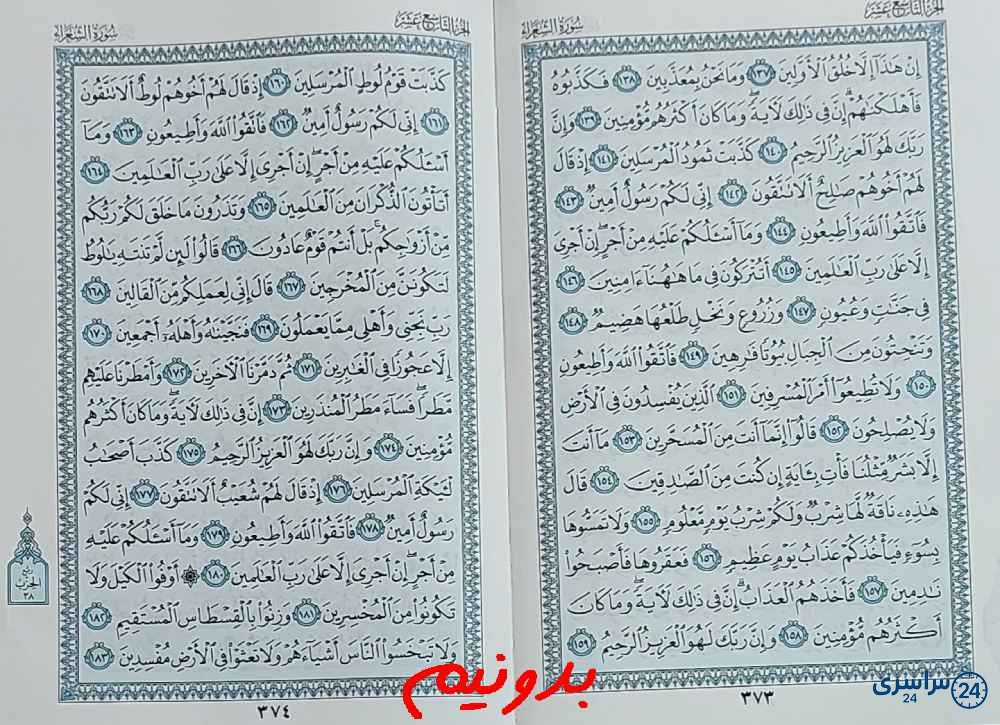 الجزء التاسع عشر
سورة الشعراء
إِنْ هَٰذَآ إِلَّا خُلُقُ ٱلْأَوَّلِينَ ١٣٧ وَمَا نَحْنُ بِمُعَذَّبِينَ ١٣٨ فَكَذَّبُوهُ
فَأَهْلَكْنَٰهُمْ إِنَّ فِى ذَٰلِكَ لَأٓيَةً وَمَا كَانَ أَكْثَرُهُم مُّؤْمِنِينَ ١٣٩ وَإِنَّ
رَبَّكَ لَهُوَ ٱلْعَزِيزُ ٱلرَّحِيمُ ١٤٠ كَذَّبَتْ ثَمُودُ ٱلْمُرْسَلِينَ ١٤١ إِذْ قَالَ
لَهُمْ أَخُوهُمْ صَٰلِحٌ أَلَا تَتَّقُونَ ١٤٢ إِنِّى لَكُمْ رَسُولٌ أَمِينٌ ١٤٣
فَٱتَّقُوا۟ ٱللَّهَ وَأَطِيعُونِ ١٤٤ وَمَآ أَسْـَٔلُكُمْ عَلَيْهِ مِنْ أَجْرٍ إِنْ أَجْرِىَ
إِلَّا عَلَىٰ رَبِّ ٱلْعَٰلَمِينَ ١٤٥ أَتُتْرَكُونَ فِى مَا هَٰهُنَآ ءَامِنِينَ ١٤٦
فِى جَنَّٰتٍ وَعُيُونٍ ١٤٧ وَزُرُوعٍ وَنَخْلٍ طَلْعُهَا هَضِيمٌ ١٤٨
وَتَنْحِتُونَ مِنَ ٱلْجِبَالِ بُيُوتًا فَٰرِهِينَ ١٤٩ فَٱتَّقُوا۟ ٱللَّهَ وَأَطِيعُونِ
١٥٠ وَلَا تُطِيعُوٓا۟ أَمْرَ ٱلْمُسْرِفِينَ ١٥١ ٱلَّذِينَ يُفْسِدُونَ فِى ٱلْأَرْضِ
وَلَا يُصْلِحُونَ ١٥٢ قَالُوٓا۟ إِنَّمَآ أَنتَ مِنَ ٱلْمُسَحَّرِينَ ١٥٣ مَآ أَنتَ
إِلَّا بَشَرٌ مِّثْلُنَا فَأْتِ بِـَٔايَةٍ إِن كُنتَ مِنَ ٱلصَّٰدِقِينَ ١٥٤ قَالَ
هَٰذِهِۦ نَاقَةٌ لَّهَا شِرْبٌ وَلَكُمْ شِرْبُ يَوْمٍ مَّعْلُومٍ ١٥٥ وَلَا تَمَسُّوهَا
بِسُوٓءٍ فَيَأْخُذَكُمْ عَذَابُ يَوْمٍ عَظِيمٍ ١٥٦ فَعَقَرُوهَا فَأَصْبَحُوا۟
نَٰدِمِينَ ١٥٧ فَأَخَذَهُمُ ٱلْعَذَابُ إِنَّ فِى ذَٰلِكَ لَأٓيَةً وَمَا كَانَ
أَكْثَرُهُم مُّؤْمِنِينَ ١٥٨ وَإِنَّ رَبَّكَ لَهُوَ ٱلْعَزِيزُ ٱلرَّحِيمُ ١٥٩
٣٧٣
الجزء التاسع عشر
سورة الشعراء
كَذَّبَتْ قَوْمُ لُوطٍ ٱلْمُرْسَلِينَ ١٦٠ إِذْ قَالَ لَهُمْ أَخُوهُمْ لُوطٌ أَلَا تَتَّقُونَ
١٦١ إِنِّى لَكُمْ رَسُولٌ أَمِينٌ ١٦٢ فَٱتَّقُوا۟ ٱللَّهَ وَأَطِيعُونِ ١٦٣ وَمَآ
أَسْـَٔلُكُمْ عَلَيْهِ مِنْ أَجْرٍ إِنْ أَجْرِىَ إِلَّا عَلَىٰ رَبِّ ٱلْعَٰلَمِينَ ١٦٤
أَتَأْتُونَ ٱلذُّكْرَانَ مِنَ ٱلْعَٰلَمِينَ ١٦٥ وَتَذَرُونَ مَا خَلَقَ لَكُمْ رَبُّكُم
مِّنْ أَزْوَٰجِكُم بَلْ أَنتُمْ قَوْمٌ عَادُونَ ١٦٦ قَالُوا۟ لَئِن لَّمْ تَنتَهِ يَٰلُوطُ
لَتَكُونَنَّ مِنَ ٱلْمُخْرَجِينَ ١٦٧ قَالَ إِنِّى لِعَمَلِكُم مِّنَ ٱلْقَالِينَ ١٦٨
رَبِّ نَجِّنِى وَأَهْلِى مِمَّا يَعْمَلُونَ ١٦٩ فَنَجَّيْنَٰهُ وَأَهْلَهُۥٓ أَجْمَعِينَ ١٧٠
إِلَّا عَجُوزًا فِى ٱلْغَٰبِرِينَ ١٧١ ثُمَّ دَمَّرْنَا ٱلْأٓخَرِينَ ١٧٢ وَأَمْطَرْنَا عَلَيْهِم
مَّطَرًا فَسَآءَ مَطَرُ ٱلْمُنذَرِينَ ١٧٣ إِنَّ فِى ذَٰلِكَ لَأٓيَةً وَمَا كَانَ أَكْثَرُهُم
مُّؤْمِنِينَ ١٧٤ وَإِنَّ رَبَّكَ لَهُوَ ٱلْعَزِيزُ ٱلرَّحِيمُ ١٧٥ كَذَّبَ أَصْحَٰبُ
لْـَٔيْكَةِ ٱلْمُرْسَلِينَ ١٧٦ إِذْ قَالَ لَهُمْ شُعَيْبٌ أَلَا تَتَّقُونَ ١٧٧ إِنِّى لَكُمْ
رَسُولٌ أَمِينٌ ١٧٨ فَٱتَّقُوا۟ ٱللَّهَ وَأَطِيعُونِ ١٧٩ وَمَآ أَسْـَٔلُكُمْ عَلَيْهِ
مِنْ أَجْرٍ إِنْ أَجْرِىَ إِلَّا عَلَىٰ رَبِّ ٱلْعَٰلَمِينَ ١٨٠ ۞ أَوْفُوا۟ ٱلْكَيْلَ وَلَا
تَكُونُوا۟ مِنَ ٱلْمُخْسِرِينَ ١٨١ وَزِنُوا۟ بِٱلْقِسْطَاسِ ٱلْمُسْتَقِيمِ ١٨٢
وَلَا تَبْخَسُوا۟ ٱلنَّاسَ أَشْيَآءَهُمْ وَلَا تَعْثَوْا۟ فِى ٱلْأَرْضِ مُفْسِدِينَ ١٨٣
الحزب
٣٨
٣٧٤
بدونیم
سراسری 24
24